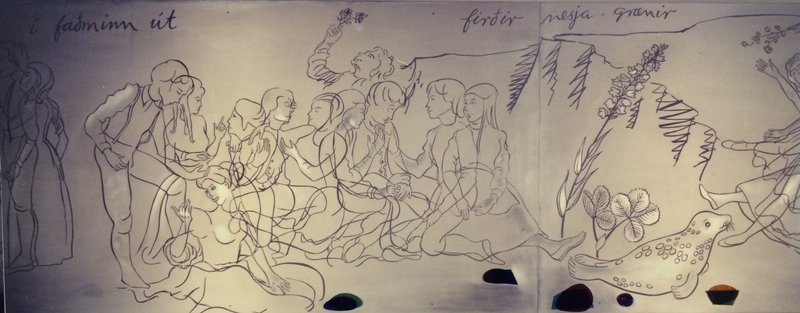 í faðminn út
firðir nesja · grænir